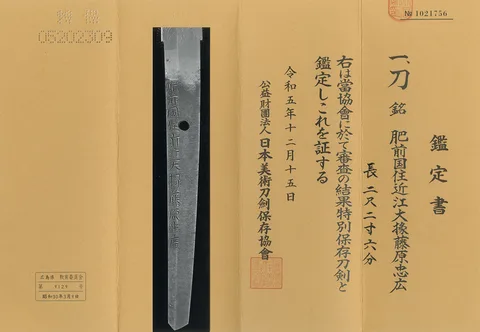 № 1021756
鑑定書
一、刀 銘 肥前国住近江大掾藤原忠広
長 二尺二寸六分
右は當協會に於て審査の結果特別保存刀劍と
鑑定しこれを証する
令和五年十二月十五日
公益財團法人 日本美術刀劍保存協會
05202309
教育委員会
昭和50年3月9日